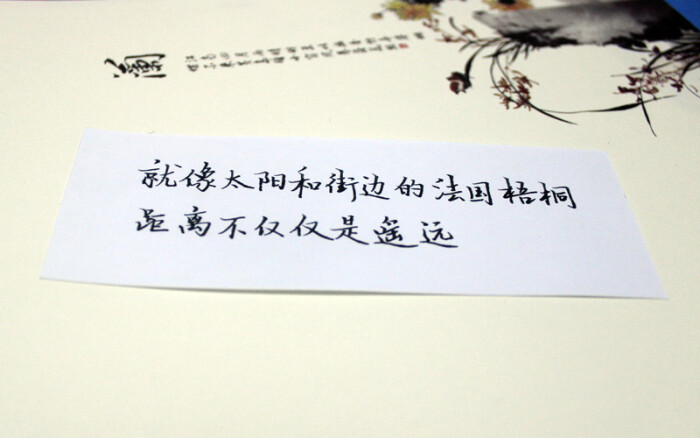 蘭
就像太阳和街边的法国梧桐
距离不仅仅是遥远